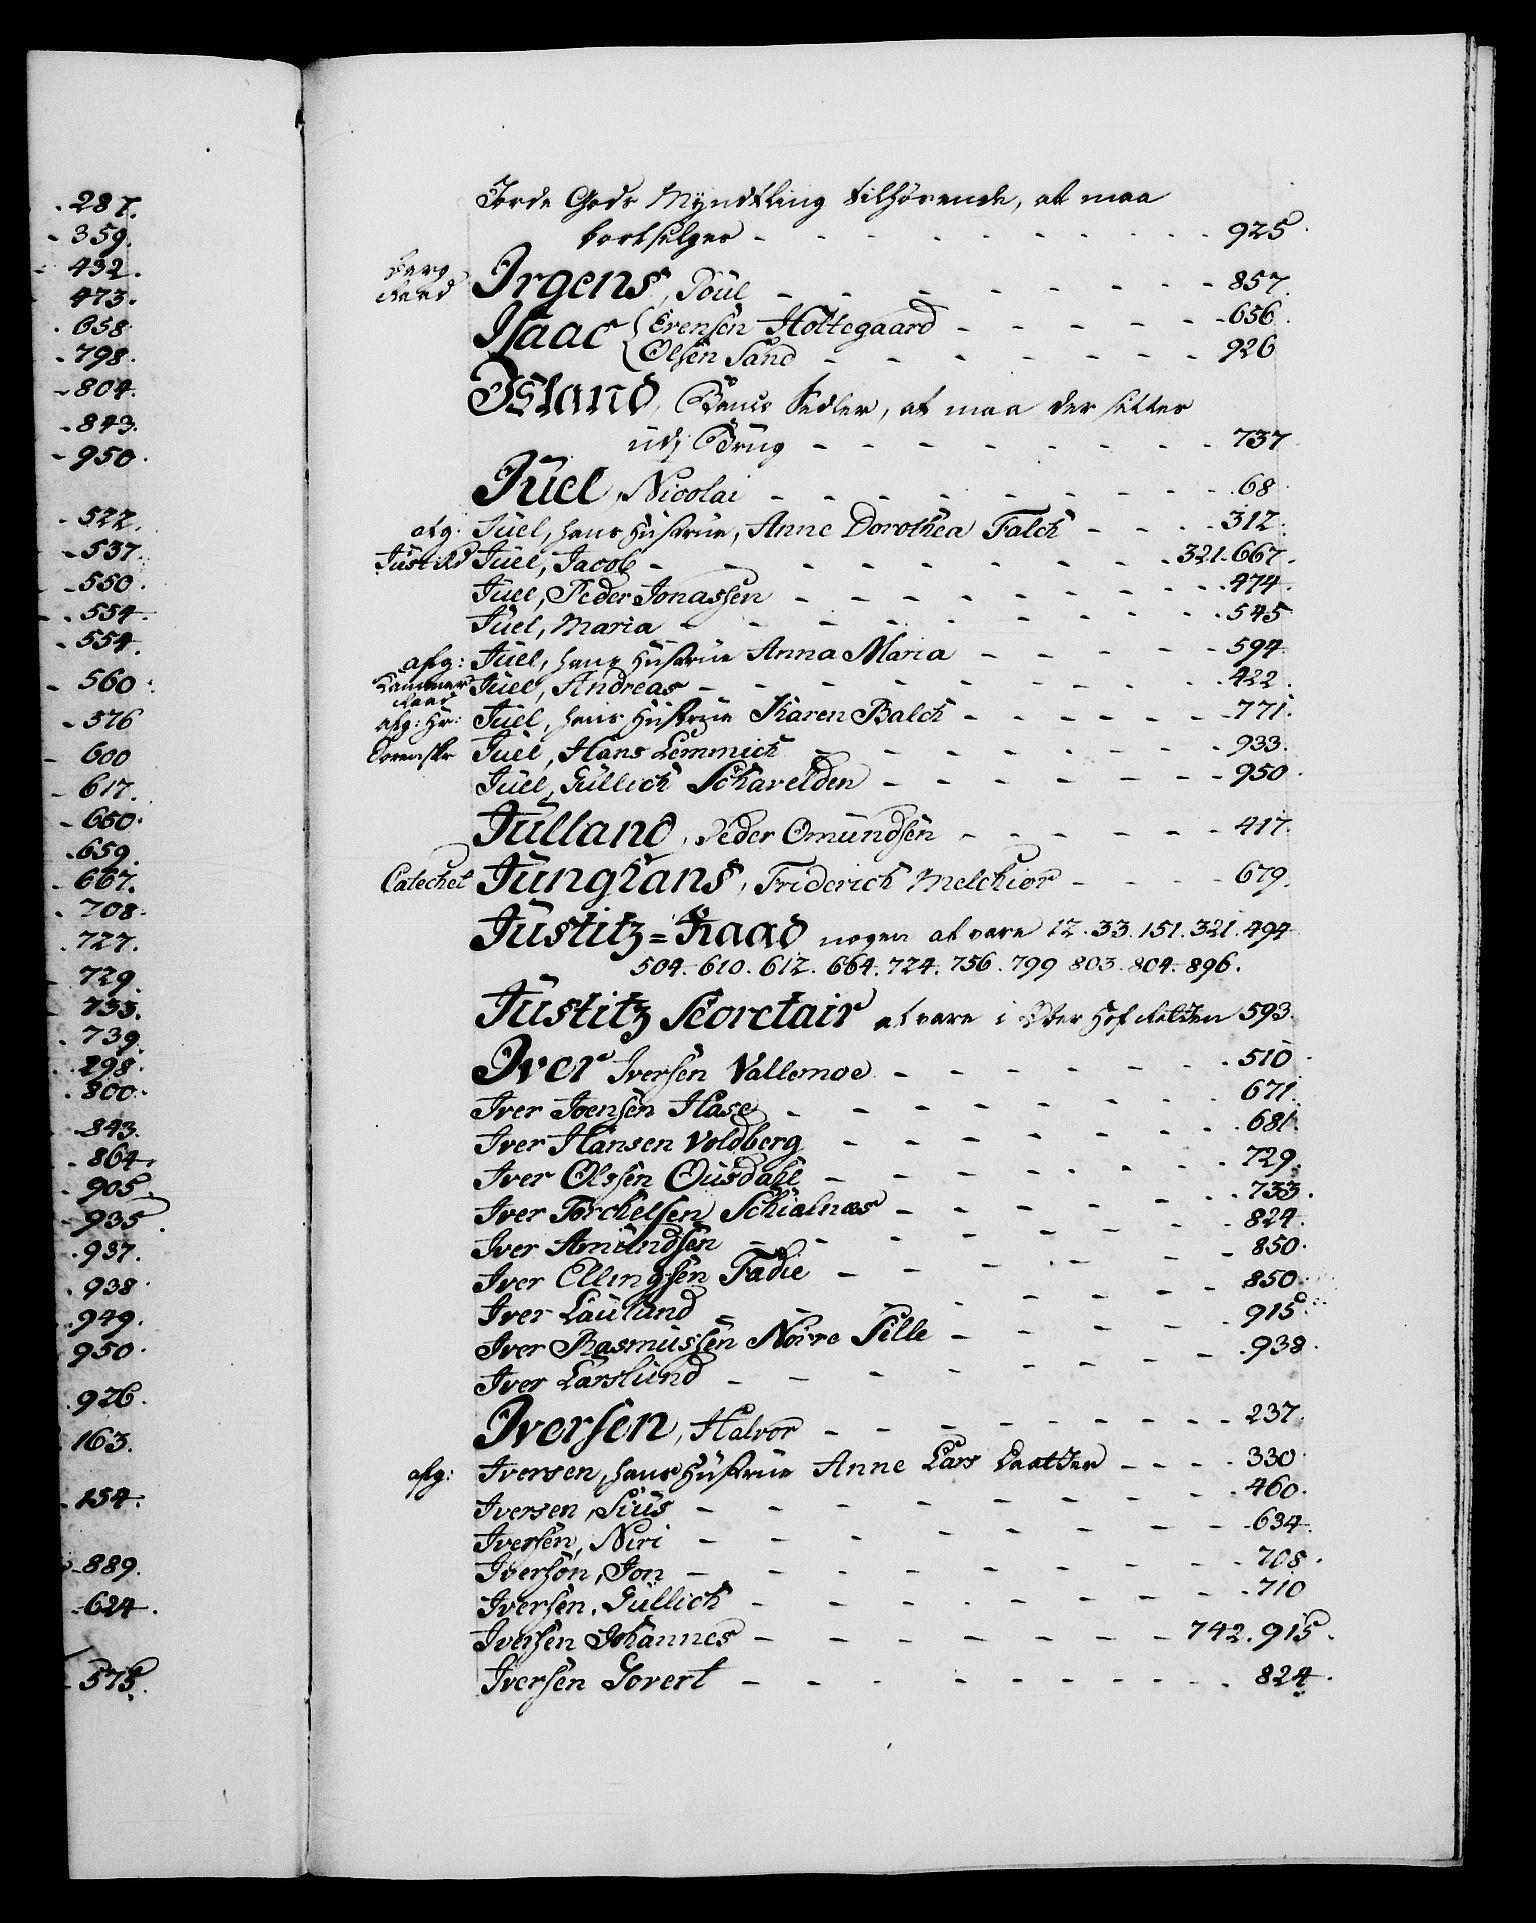 287.
359.
432.
473.
658.
798.
804.
843.
950.
522.
537.
550.
554.
554.
560.
576
600
617.
650.
659.
667.
708.
727.
729.
733.
739.
298.
800.
843.
864.
905.
935.
937.
938.
949.
950.
926.
163.
154.
889.
624.
575.
Jorde Gods Myndtling tilhørende, at maa
bortselges - - - 925.
Berg Raad Irgens, Poül - - - 857.
Isaac { Erensen Holtegaard - - - 656.
{ Olsen Sand - - - 926
Island, Banco Sedler, at maa der settes
udj Brug - - - 737
Jüel, Nicolai - - - 68.
afg: Juel, hans Hüstrüe, Anne Dorothea Falch - - - 312.
Just: Rd Jüel, Jacob - - - 321.667.
Jüel, Peder Jonassen - - - 474.
Jüel, Maria - - - 545
afg: Jüel, hans Hüstrüe Anna Maria - - - 594
Kammer Raad Jüel, Andreas - - - 422.
afg: Hr: Jüel, hans Hüstrüe Karen Balch - - - 771.
Sorenskr Jüel, Hans Lemmich - - - 933.
Jüel, Güllich Scharelden - - - 950.
Jülland, Peder Omündsen - - - 417.
Catechet Jünghans, Friderich Melchior - - - 679.
Jüstitz=Raad nogen at være 12.33.151.321.494
504.610.612.664.724.756.799 803.804.896.
Jüstitz Secretair at være i Over Hof Retten 593.
Iver Iversen Vallemoe - - - 510.
Iver Joensen Hase - - - 671.
Iver Hansen Voldberg - - - 681.
Iver Olssen Ousdahl - - - 729.
Iver Torchelsen Schialnæs - - - 733.
Iver Amündsen - - - 824.
Iver Ellingsen Fadie - - - 850.
Iver Lauland - - - 850.
Iver Rasmüssen Nørre Pelle - - - 915.
Iver Larslund - - - 938.
Iversen, Halvor - - - 237.
afg: Iversen, hans Hüstrüe Anne Lars Daatter - - - 330
Iversen, Siüs - - - 460.
Iversen, Niri - - - 634.
Iversøn, Jon - - - 708.
Iversen, Güllich - - - 710
Iversen Johannes - - - 742.915.
Iversen Govert - - - 824.